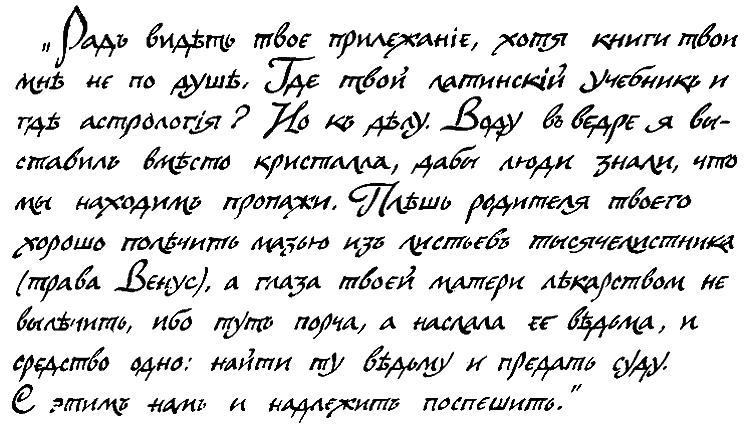 „Радъ видѣть твое прилежанiе, хотя книги твои
мнѣ не по душѣ. Где твой латинскiй учебникъ и
гдѣ астрологiя? Но къ дѣлу. Воду въ ведре я вы-
ставилъ вмѣсто кристалла, дабы люди знали, что
мы находимъ пропажи. Плѣшь родителя твоего
хорошо полѣчить мазью изъ листьевъ тысячелистника
(трава Венус), а глаза твоей матери лѣкарством не
вылѣчить, ибо тутъ порча, а наслала ее вѣдьма, и
средство одно: найти ту вѣдьму и предать суду.
С этимъ намъ и надлежитъ поспешить.“